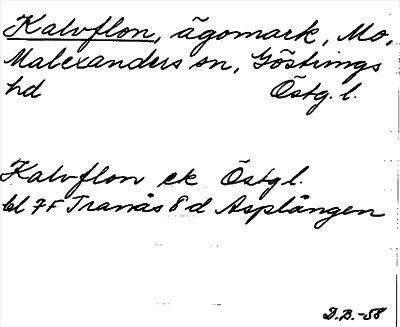 Kalvflon, ägomark, Mo,
Malexanders sn, Göstrings
hd Östg. l.
Kalvflon ek Östgl.
bl 7F Tranås 8 d Asplången
D.B.-58